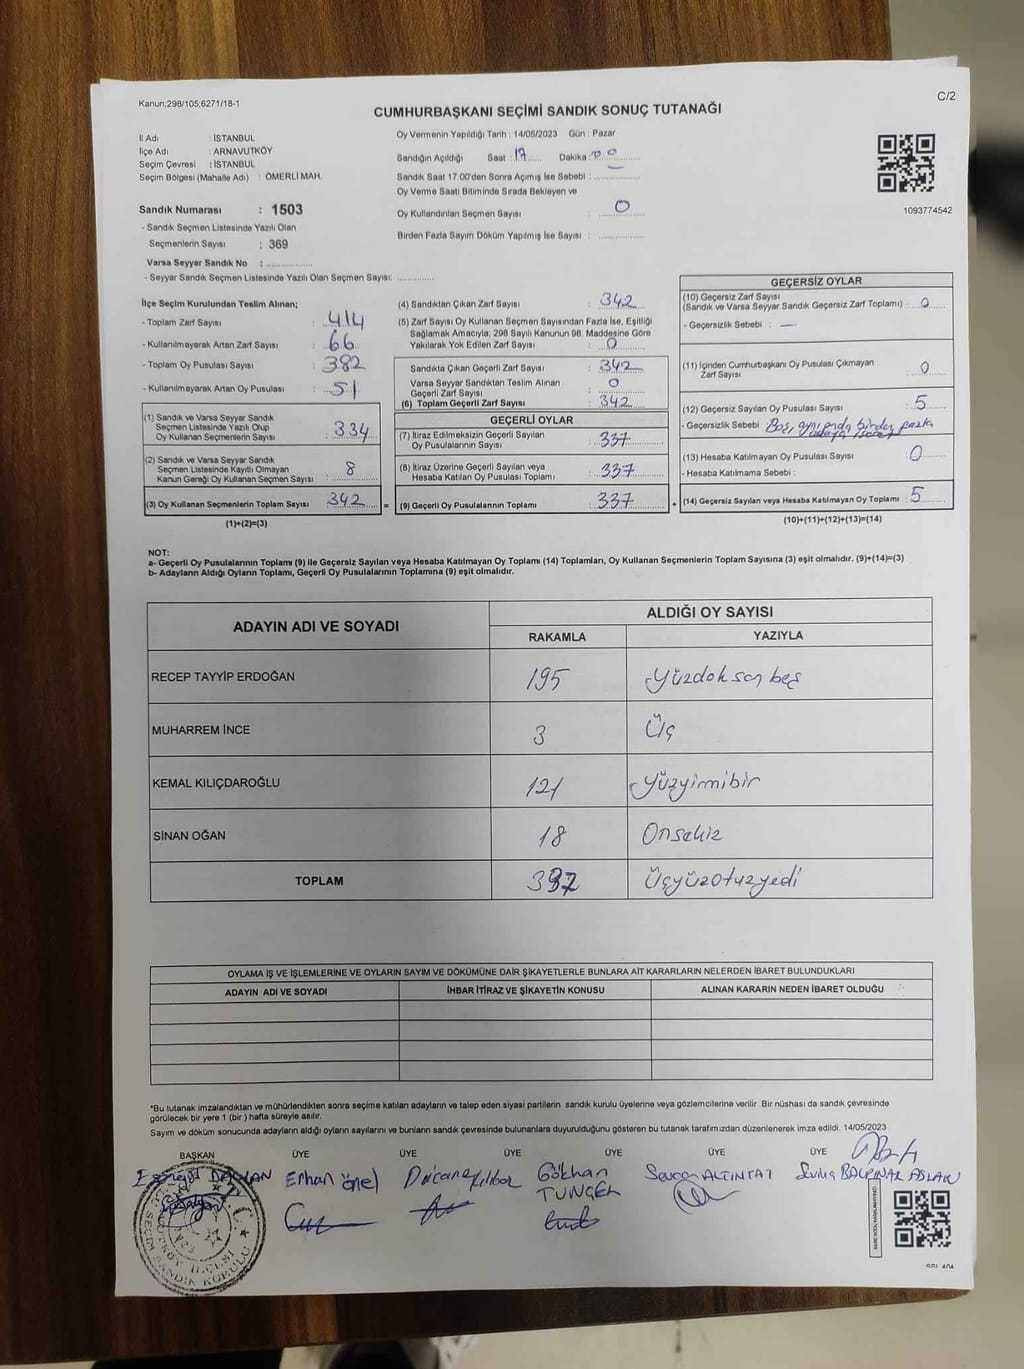 Kanun;298/105;6271/18-1
C/2
CUMHURBAŞKANI SEÇİMİ SANDIK SONUÇ TUTANAĞI
İl Adı : İSTANBUL
İlçe Adı : ARNAVUTKÖY
Seçim Çevresi : İSTANBUL
Seçim Bölgesi (Mahalle Adı) : ÖMERLİ MAH.
Oy Vermenin Yapıldığı Tarih : 14/05/2023 Gün : Pazar
Sandığın Açıldığı Saat : 17 Dakika : 00
Sandık Saat 17:00'den Sonra Açımış İse Sebebi : —
Oy Verme Saati Bitiminde Sırada Bekleyen ve
Oy Kullandırılan Seçmen Sayısı : 0
Birden Fazla Sayım Döküm Yapılmış İse Sayısı :
1093774542
Sandık Numarası : 1503
- Sandık Seçmen Listesinde Yazılı Olan
Seçmenlerin Sayısı : 369
Varsa Seyyar Sandık No :
- Seyyar Sandık Seçmen Listesinde Yazılı Olan Seçmen Sayısı:
İlçe Seçim Kurulundan Teslim Alınan;
- Toplam Zarf Sayısı : 414
- Kullanılmayarak Artan Zarf Sayısı : 66
- Toplam Oy Pusulası Sayısı : 382
- Kullanılmayarak Artan Oy Pusulası : 51
(1) Sandık ve Varsa Seyyar Sandık
Seçmen Listesinde Yazılı Olup
Oy Kullanan Seçmenlerin Sayısı : 334
(2) Sandık ve Varsa Seyyar Sandık
Seçmen Listesinde Kayıtlı Olmayan
Kanun Gereği Oy Kullanan Seçmen Sayısı : 8
(3) Oy Kullanan Seçmenlerin Toplam Sayısı : 342 =
(1)+(2)=(3)
(4) Sandıktan Çıkan Zarf Sayısı : 342
(5) Zarf Sayısı Oy Kullanan Seçmen Sayısından Fazla İse, Eşitliği
Sağlamak Amacıyla; 298 Sayılı Kanunun 98. Maddesine Göre
Yakılarak Yok Edilen Zarf Sayısı : 0
Sandıkta Çıkan Geçerli Zarf Sayısı : 342
Varsa Seyyar Sandıktan Teslim Alınan
Geçerli Zarf Sayısı : 0
(6) Toplam Geçerli Zarf Sayısı : 342
GEÇERLİ OYLAR
(7) İtiraz Edilmeksizin Geçerli Sayılan
Oy Pusulalarının Sayısı : 337
(8) İtiraz Üzerine Geçerli Sayılan veya
Hesaba Katılan Oy Pusulası Toplamı : 337
(9) Geçerli Oy Pusulalarının Toplamı : 337 +
GEÇERSİZ OYLAR
(10) Geçersiz Zarf Sayısı
(Sandık ve Varsa Seyyar Sandık Geçersiz Zarf Toplamı) : 0
- Geçersizlik Sebebi : —
(11) İçinden Cumhurbaşkanı Oy Pusulası Çıkmayan
Zarf Sayısı : 0
(12) Geçersiz Sayılan Oy Pusulası Sayısı : 5
- Geçersizlik Sebebi birden fazla
(13) Hesaba Katılmayan Oy Pusulası Sayısı : 0
- Hesaba Katılmama Sebebi :
(14) Geçersiz Sayılan veya Hesaba Katılmayan Oy Toplamı : 5
(10)+(11)+(12)+(13)=(14)
NOT:
a- Geçerli Oy Pusulalarının Toplamı (9) ile Geçersiz Sayılan veya Hesaba Katılmayan Oy Toplamı (14) Toplamları, Oy Kullanan Seçmenlerin Toplam Sayısına (3) eşit olmalıdır. (9)+(14)=(3)
b- Adayların Aldığı Oyların Toplamı, Geçerli Oy Pusulalarının Toplamına (9) eşit olmalıdır.
ADAYIN ADI VE SOYADI ALDIĞI OY SAYISI
RAKAMLA YAZIYLA
RECEP TAYYİP ERDOĞAN 195 Yüzdoksan beş
MUHARREM İNCE 3 Üç
KEMAL KILIÇDAROĞLU 121 Yüzyirmibir
SİNAN OĞAN 18 Onsekiz
TOPLAM 337 Üçyüzotuzyedi
OYLAMA İŞ VE İŞLEMLERİNE VE OYLARIN SAYIM VE DÖKÜMÜNE DAİR ŞİKAYETLERLE BUNLARA AİT KARARLARIN NELERDEN İBARET BULUNDUKLARI
ADAYIN ADI VE SOYADI İHBAR İTİRAZ VE ŞİKAYETİN KONUSU ALINAN KARARIN NEDEN İBARET OLDUĞU
*Bu tutanak imzalandıktan ve mühürlendikten sonra seçime katılan adayların ve talep eden siyasi partilerin sandık kurulu üyelerine veya gözlemcilerine verilir. Bir nüshası da sandık çevresinde
görülecek bir yere 1 (bir) hafta süreyle asılır.
Sayım ve döküm sonucunda adayların aldığı oyların sayılarını ve bunların sandık çevresinde bulunanlara duyurulduğunu gösteren bu tutanak tarafımızdan düzenlenerek imza edildi. 14/05/2023
BAŞKAN ÜYE ÜYE ÜYE ÜYE ÜYE
Erhan önel Gökhan TUNÇEL ALTINTAŞ Sevinç BALPINAR ASLAN
T.C.
SEÇİM SANDIK KURULU